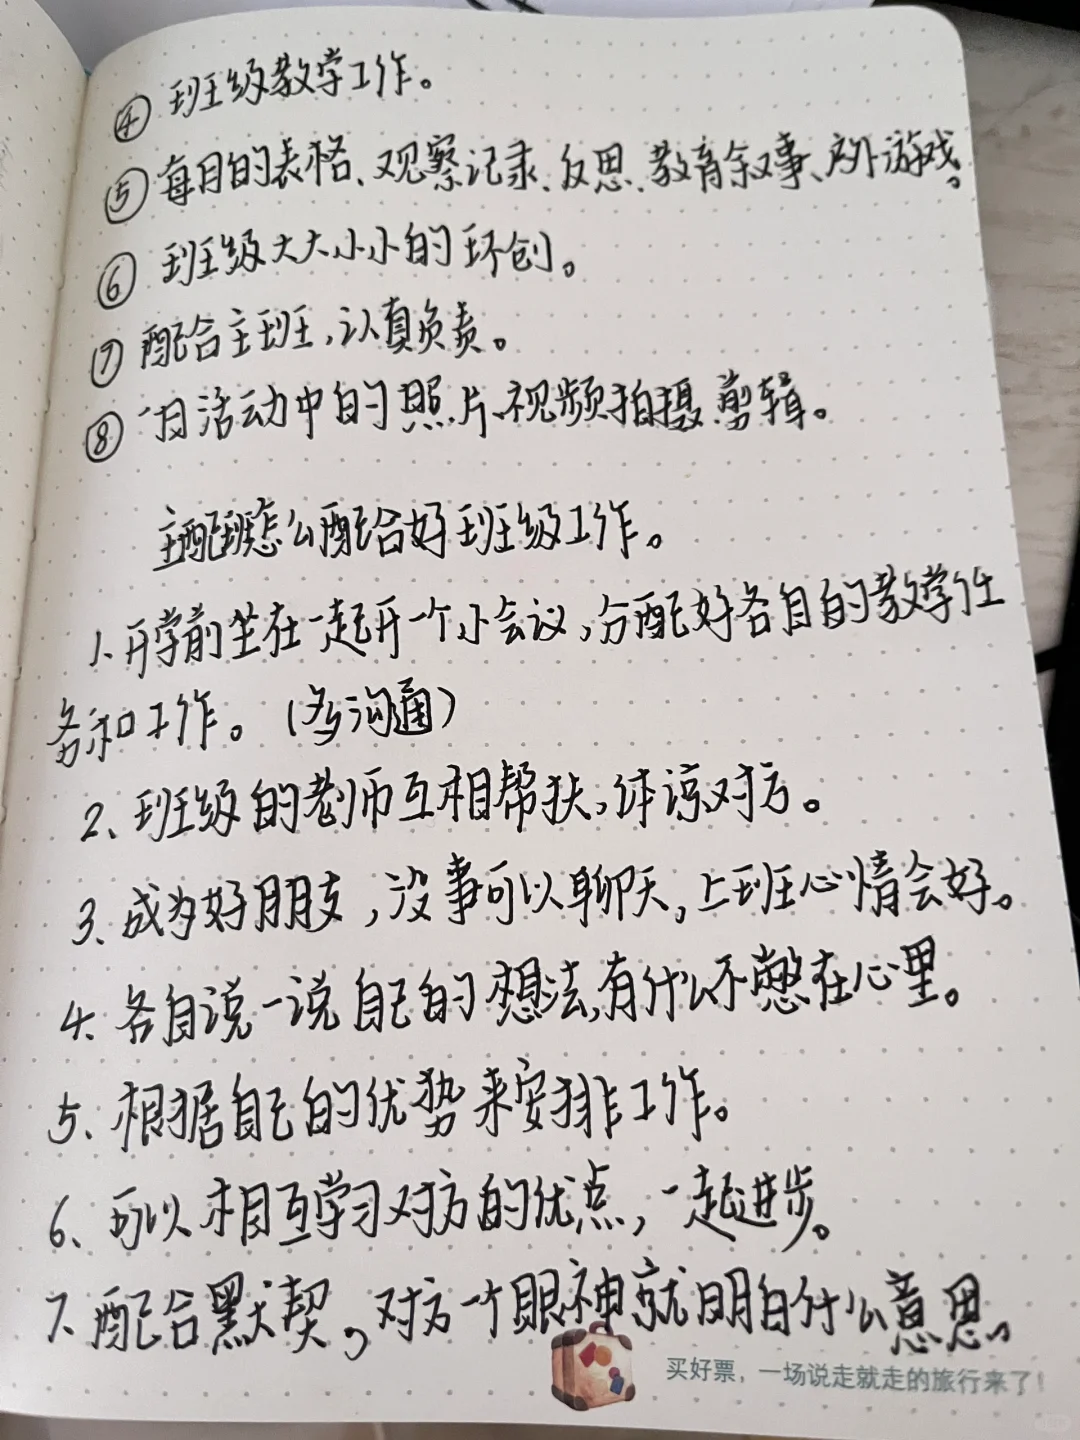 ④ 班级教学工作。
⑤ 每月的表格、观察记录、反思、教育叙事、户外游戏。
⑥ 班级大大小小的环创。
⑦ 配合主班,认真负责。
⑧ 一日活动中的照片、视频拍摄剪辑。
主配班怎么配合好班级工作。
1、开学前坐在一起开一个小会议,分配好各自的教学任
务和工作。(多沟通)
2、班级的老师互相帮扶,体谅对方。
3、成为好朋友,没事可以聊天,上班心情会好。
4、各自说一说自己的想法,有什么不憋在心里。
5、根据自己的优势来安排工作。
6、可以相互学习对方的优点,一起进步。
7、配合默契,对方一个眼神就明白什么意思。
买好票,一场说走就走的旅行来了!